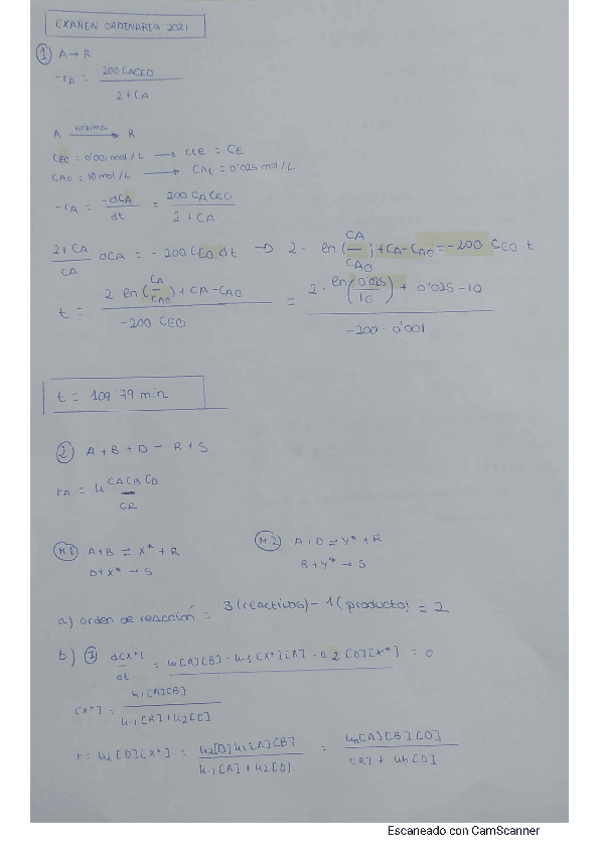 EXAMEN ORDINARIA 2021
1) A → R
-rA = 200 CACEO / 2 + CA
A enzima → R
CEO = 0'001 mol/L → CEE = CE
CAO = 10 mol/L → CAL = 0'025 mol/L
-rA = -dCA / dt = 200 CA CEO / 2 + CA
2 + CA / CA dCA = - 200 CEO dt → 2 · ln (CA / CAO) + CA - CAO = -200 CEO t
t = 2 ln (CA / CAO) + CA - CAO / -200 CEO = 2 · ln (0'025 / 10) + 0'025 - 10 / -200 · 0'001
t = 109'79 min
2) A + B + D - R + S
rA = k CA CB CD / CR
M.1 A + B ⇌ X* + R
D + X* → S
M.2 A + D ⇌ Y* + R
B + Y* → S
a) orden de reacción = 3 (reactivos) - 1 (producto) = 2
b) I) d[X*] / dt = k1[A][B] - k-1[X*][R] - k2[D][X*] = 0
[X*] = k1[A][B] / k-1[R] + k2[D]
r = k2[D][X*] = k2[D]k1[A][B] / k-1[R] + k2[D] = ka[A][B][D] / [R] + kb[D]
Escaneado con CamScanner